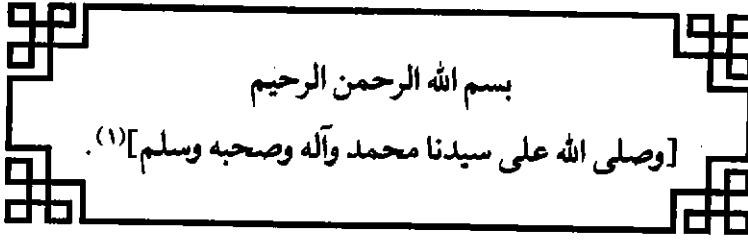 بسم الله الرحمن الرحيم
[وصلى الله على سيدنا محمد وآله وصحبه وسلم](١).